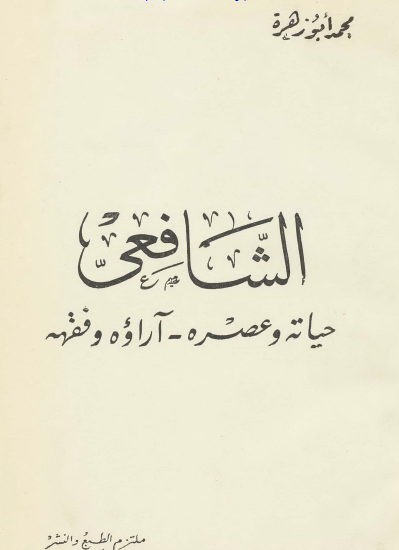 محمد أبو زهرة
الشافعي
حياته وعصره - آراؤه وفقهه
ملتزم الطبع والنشر